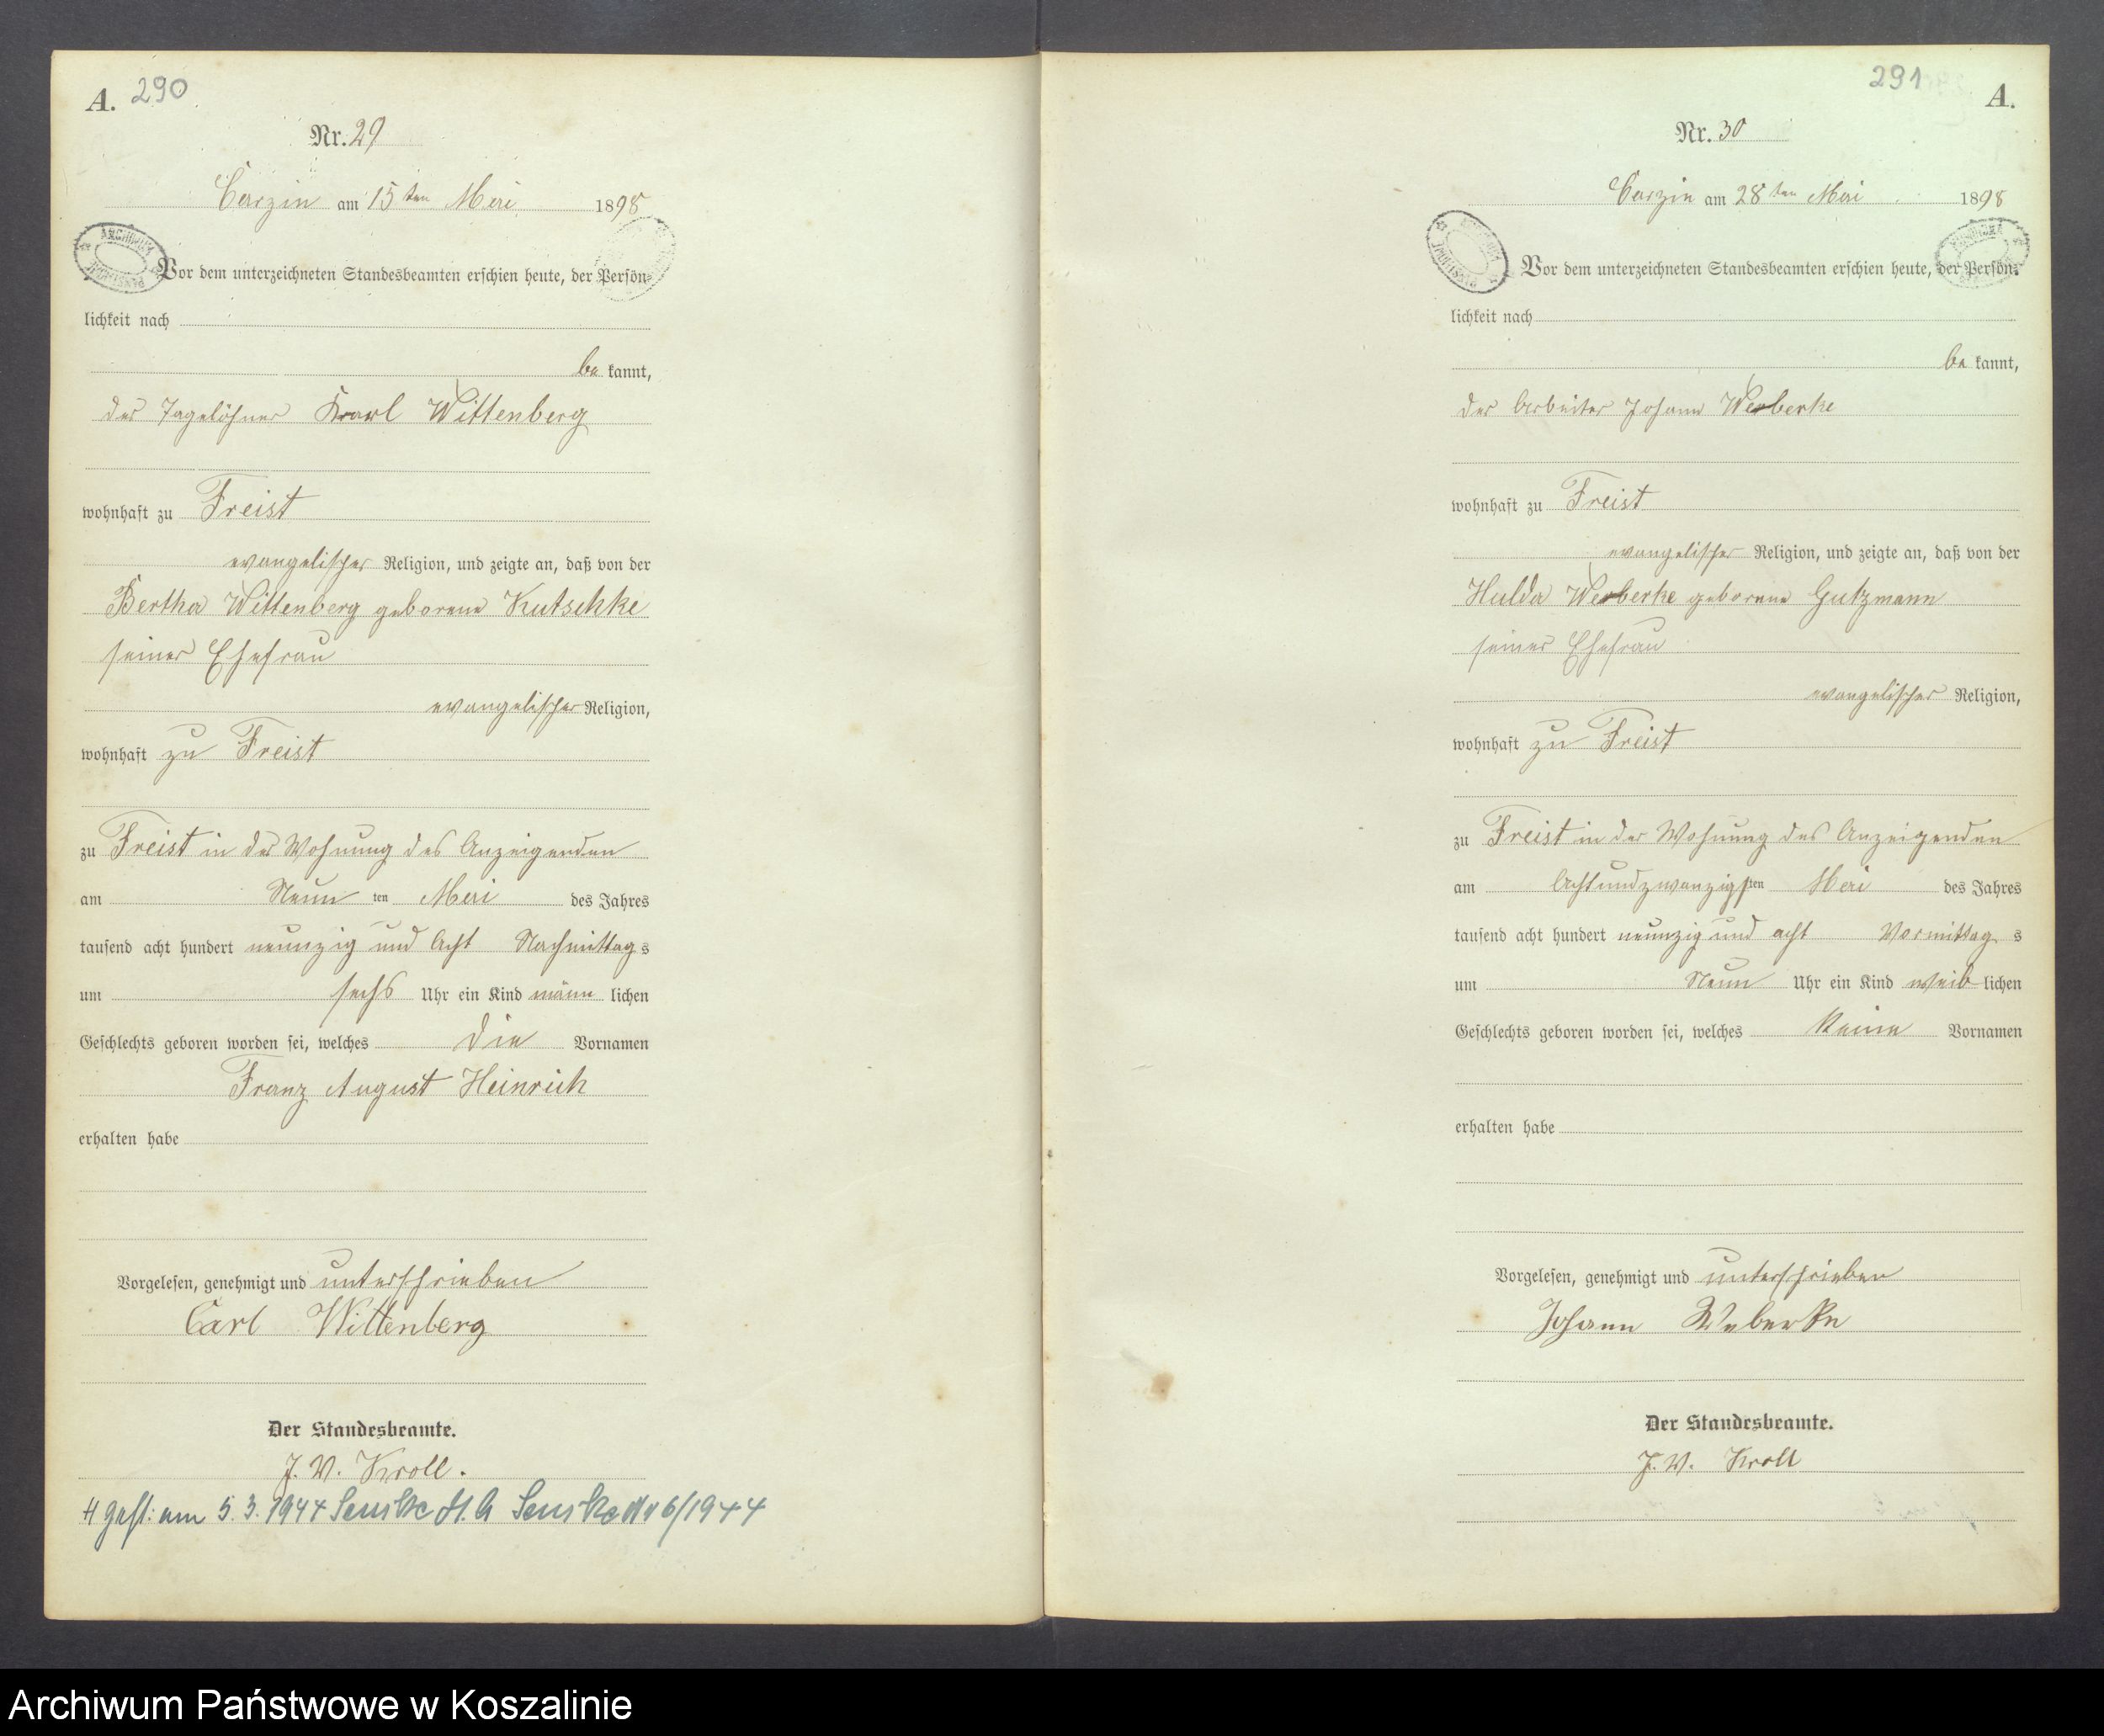 A. 290
Nr. 29
Carzin am 15ten Mai 1898
Vor dem unterzeichneten Standesbeamten erschien heute, der Persön-
lichkeit nach
be kannt,
der Tagelöhner Karl Wittenberg
wohnhaft zu Freist
evangelischer Religion, und zeigte an, daß von der
Bertha Wittenberg geborene Kutschke
seiner Ehefrau
evangelischer Religion,
wohnhaft zu Freist
zu Freist in der Wohnung des Anzeigenden
am Neun ten Mai des Jahres
tausend acht hundert neunzig und Acht Nachmittag s
um sechs Uhr ein Kind männ lichen
Geschlechts geboren worden sei, welches die Vornamen
Franz August Heinrich
erhalten habe
Vorgelesen, genehmigt und unterschrieben
Carl Wittenberg
Der Standesbeamte.
J. V. Kroll.
am 5.3.1944 6/1944
291 A.
Nr. 30
Carzin am 28ten Mai 1898
Vor dem unterzeichneten Standesbeamten erschien heute, der Persön-
lichkeit nach
be kannt,
der Arbeiter Johann Weberke
wohnhaft zu Freist
evangelischer Religion, und zeigte an, daß von der
Hulda Weberke geborene Gutzmann
seiner Ehefrau
evangelischer Religion,
wohnhaft zu Freist
zu Freist in der Wohnung des Anzeigenden
am Achtundzwanzigsten Mai des Jahres
tausend acht hundert neunzig und acht Vormittag s
um Neun Uhr ein Kind weib lichen
Geschlechts geboren worden sei, welches keine Vornamen
erhalten habe
Vorgelesen, genehmigt und unterschrieben
Johann Weberke
Der Standesbeamte.
J. V. Kroll
Archiwum Państwowe w Koszalinie